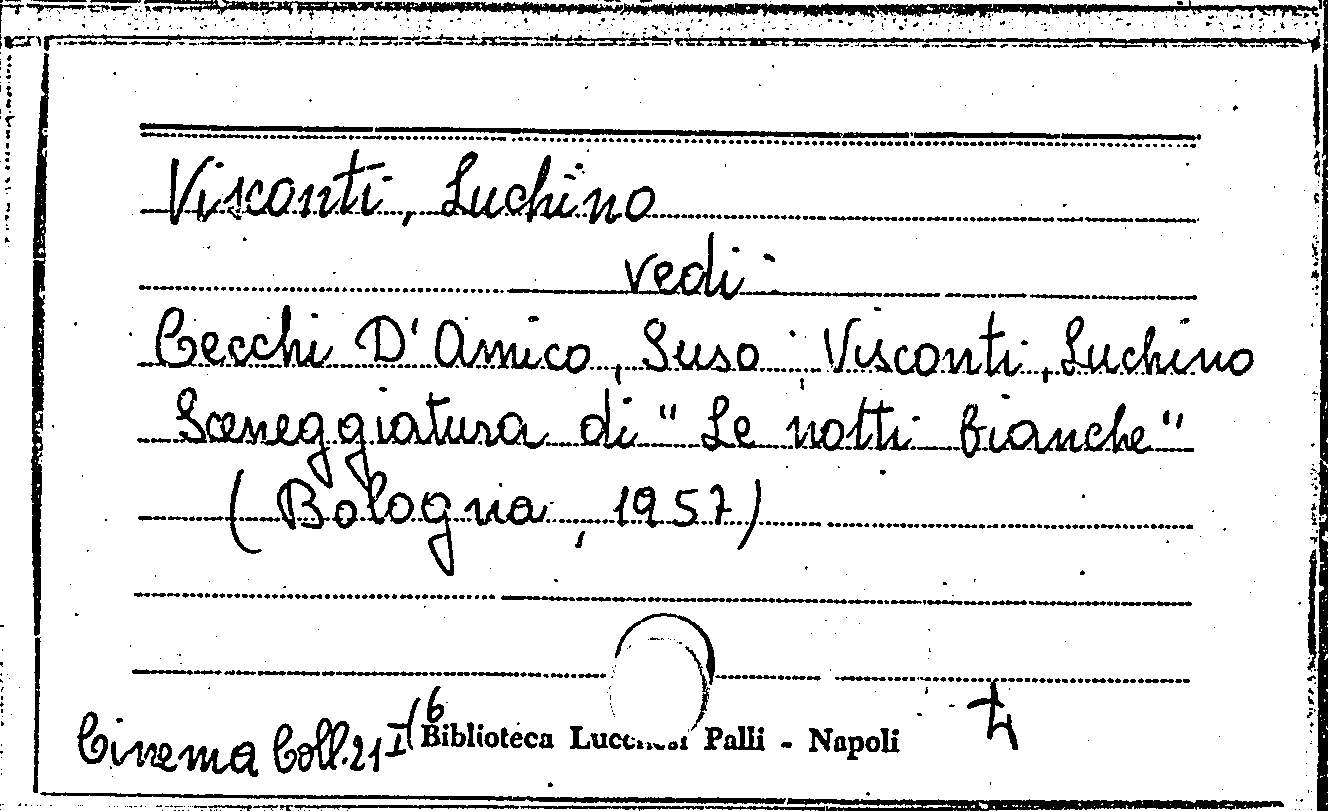 Visconti, Luchino
vedi:
Cecchi D'Amico, Suso; Visconti, Luchino
Sceneggiatura di "Le notti bianche"
(Bologna, 1957)
Cinema Coll. 21 I/6
Biblioteca Lucchesi Palli - Napoli